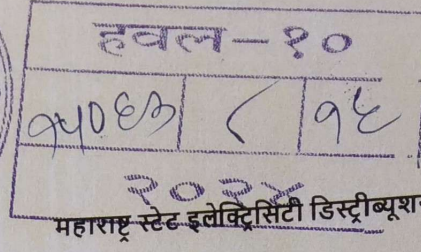 हवल - १०
८ १५
२०२४
महाराष्ट्र स्टेट इलेक्ट्रिसिटी डिस्ट्रीब्यूश